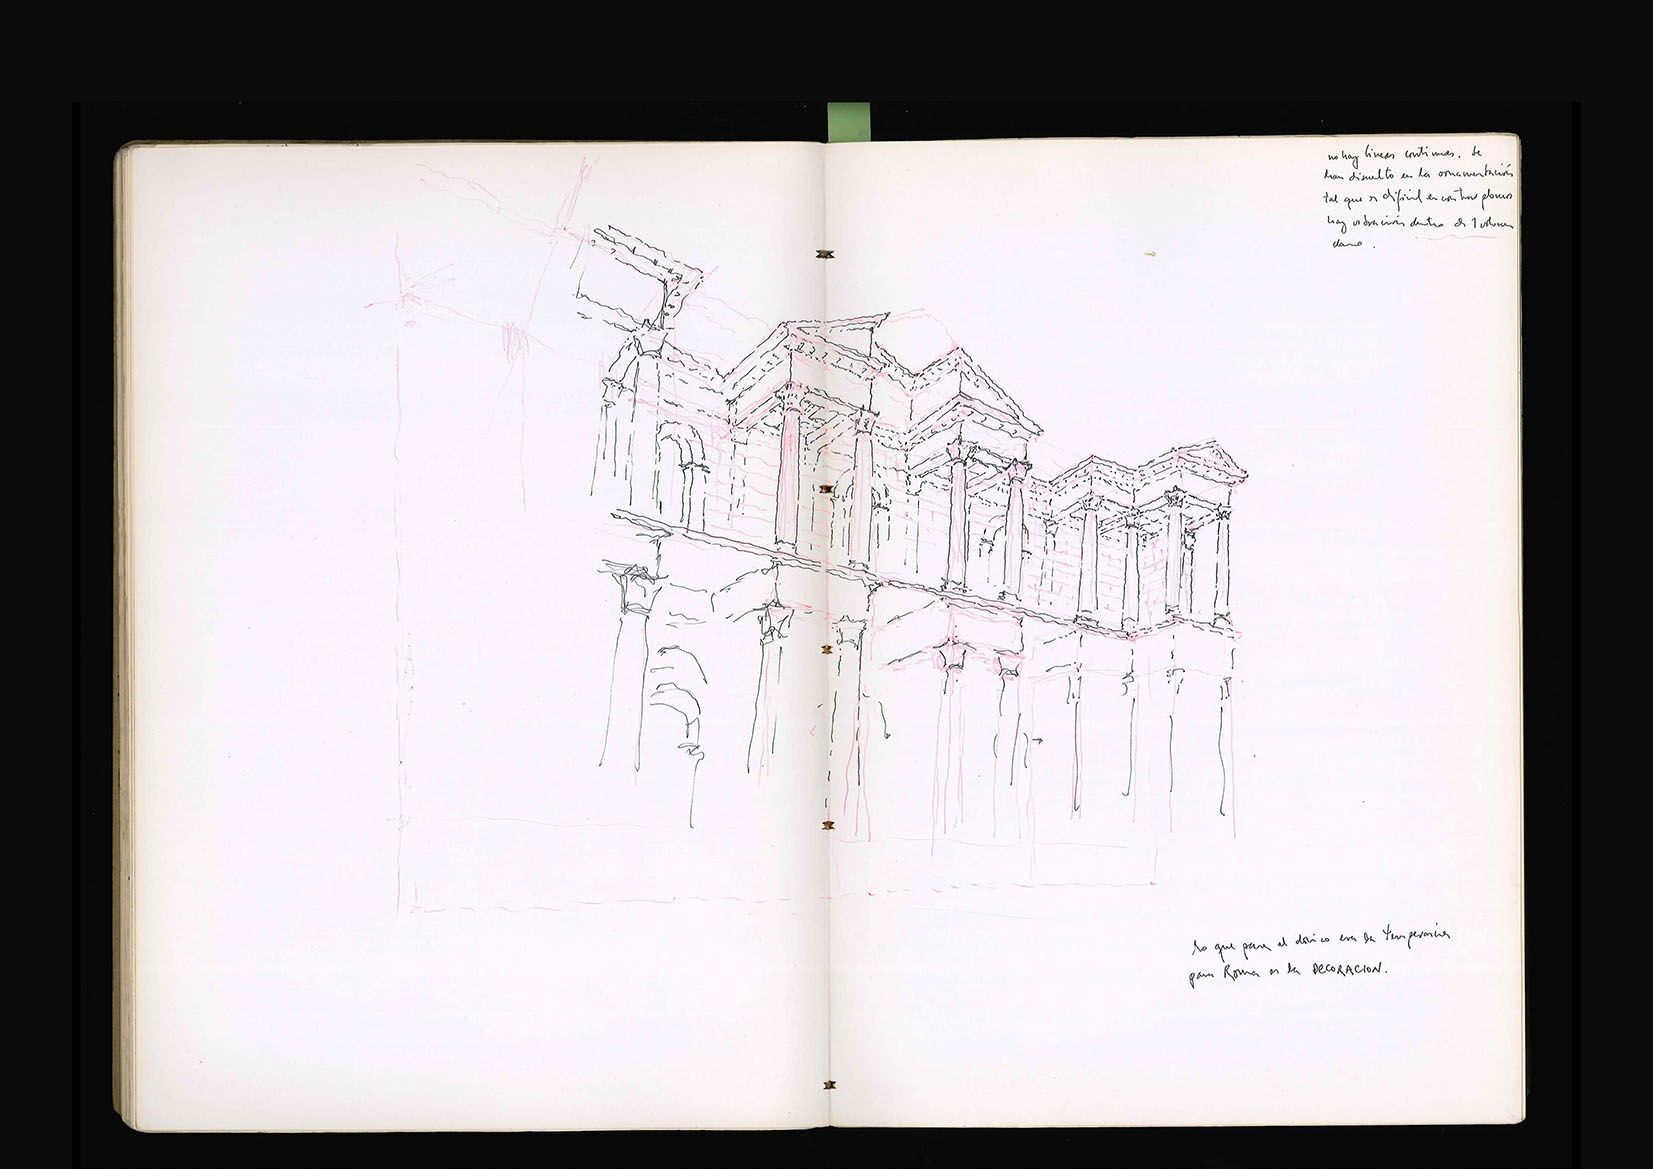 no hay líneas continuas. Se
han disuelto en la ornamentación
tal que es difícil encontrar planos
hay vibración dentro de 1 volumen
dado.
Lo que para el dórico era la
para Roma es la DECORACION.